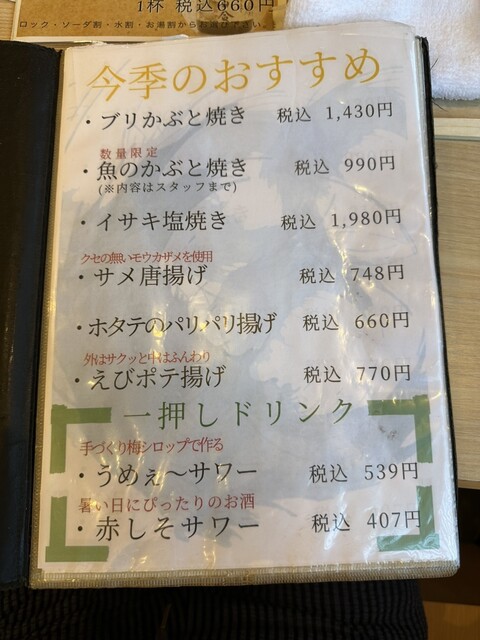 1杯 税込660円
ロック・ソーダ割・水割・お湯割からお選び下さい
今季のおすすめ
・ブリかぶと焼き 税込 1,430円
数量限定
・魚のかぶと焼き 税込 990円
(※内容はスタッフまで)
・イサキ塩焼き 税込 1,980円
クセの無いモウカザメを使用
・サメ唐揚げ 税込 748円
・ホタテのパリパリ揚げ 税込 660円
外はサクッと中はふんわり
・えびポテ揚げ 税込 770円
一押しドリンク
手づくり梅シロップで作る
・うめぇ～サワー 税込 539円
暑い日にぴったりのお酒
・赤しそサワー 税込 407円